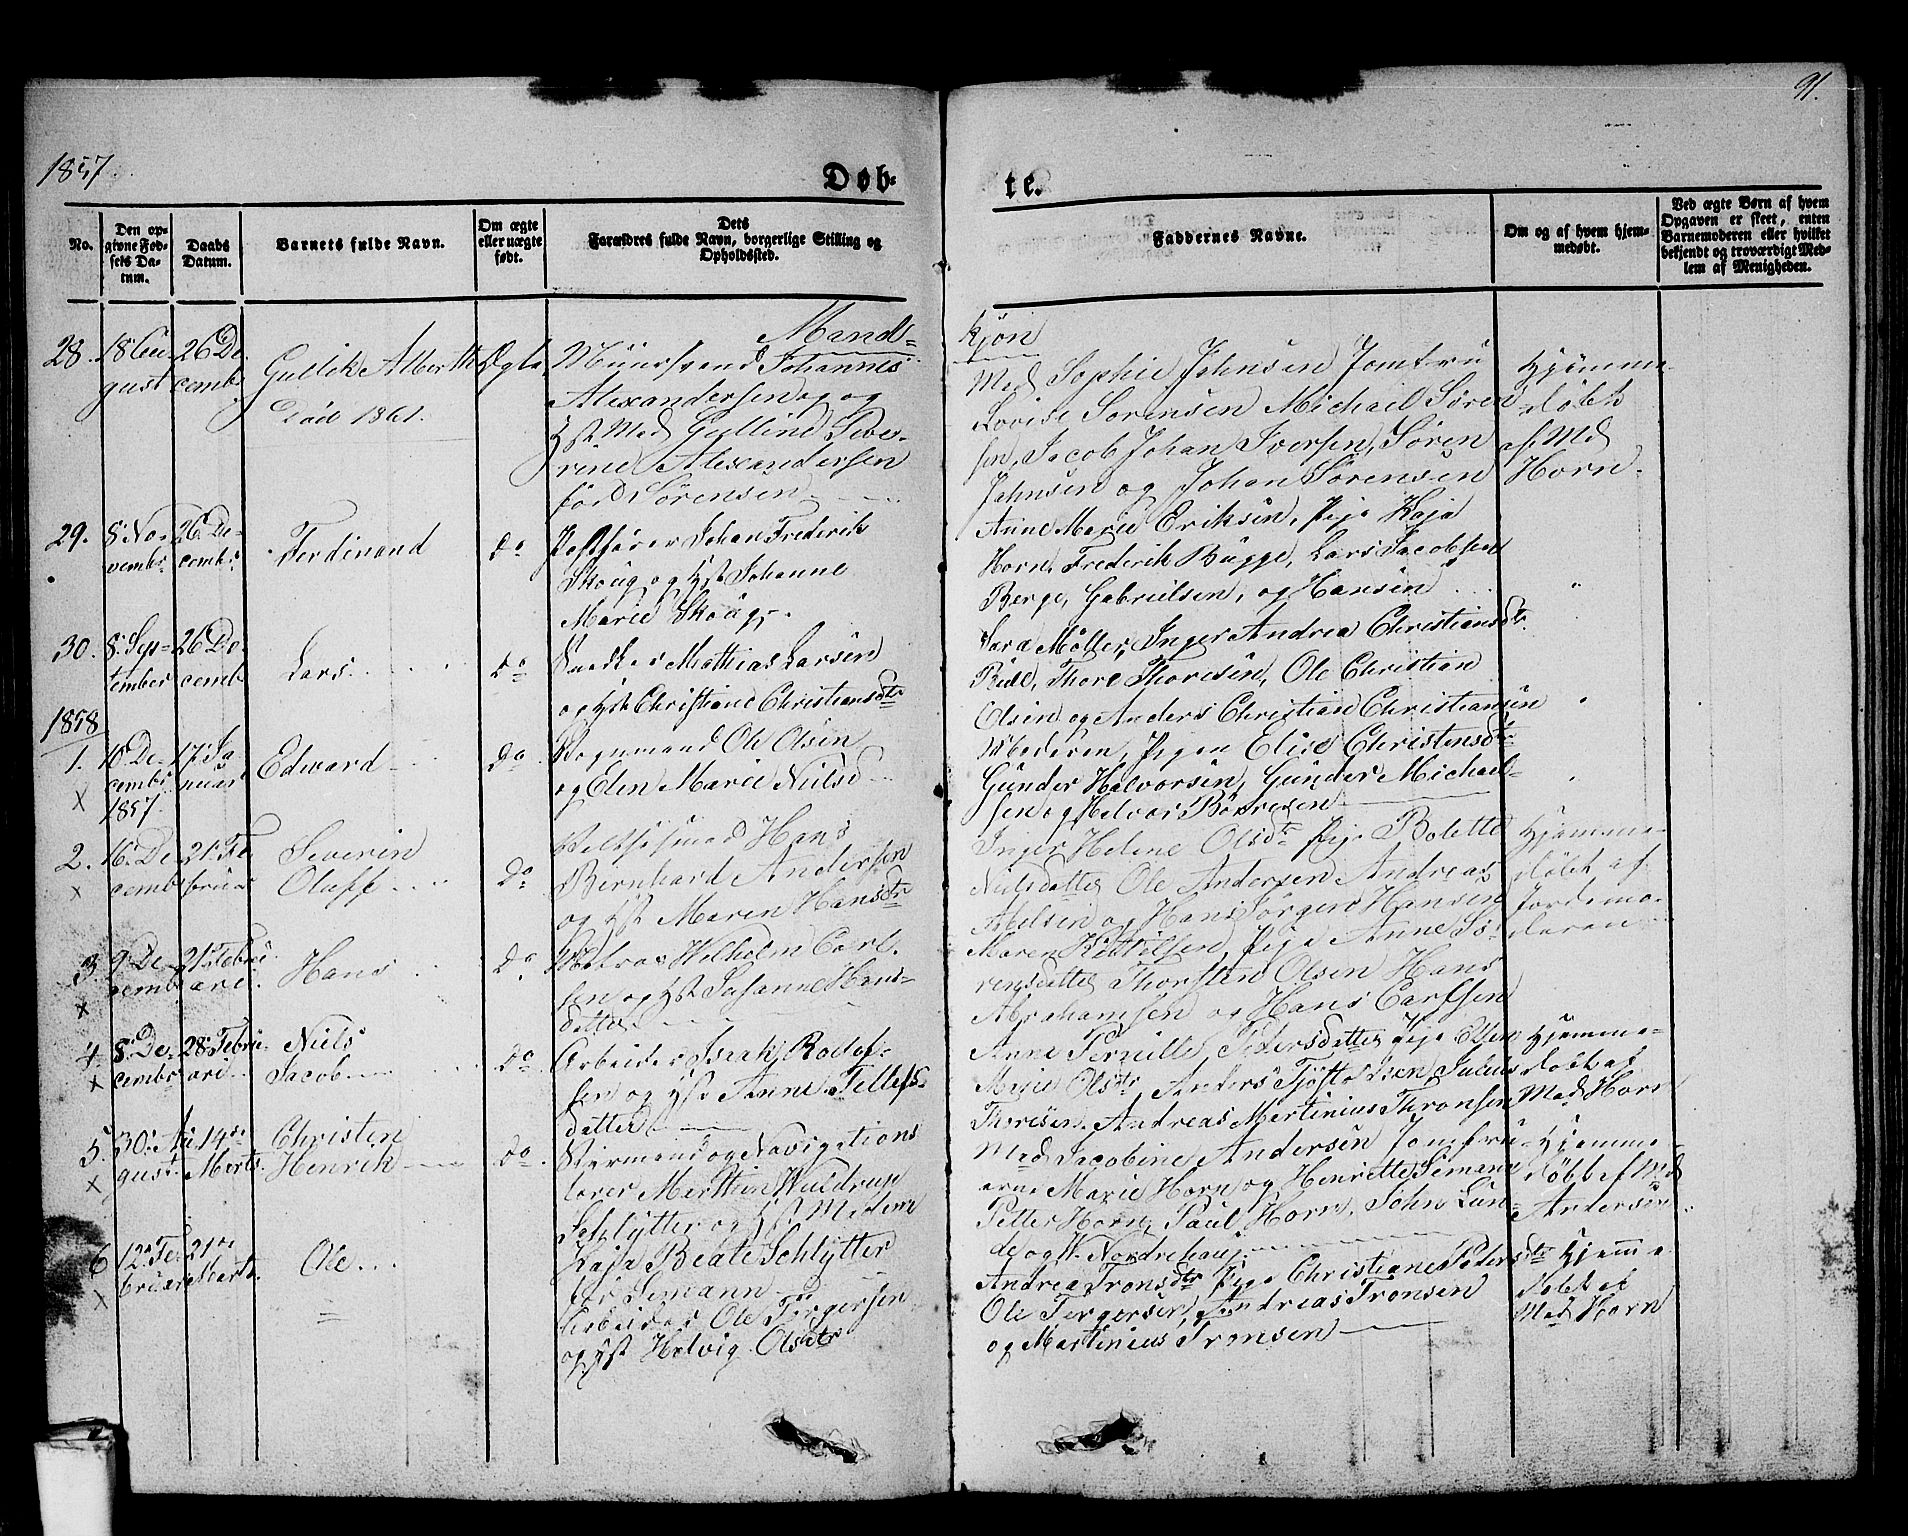 91.
1857
Døb-
te.
No.
Den op-
givne Fød-
sels Da-
tum.
Daabs
Datum.
Barnets fulde Navn.
Om ægte
eller uægte
født.
Dets
Forældres fulde Navn, borgerlige Stilling og
Opholdssted.
Faddernes Navne.
Om og af hvem hjem-
medøbt.
Ved ægte Børn af hvem
Opgaven er skeet, enten
Barnemoderen eller hvilket
bekjendt og troværdigt Med-
lem af Menigheden.
Mands-
kjøn
28. 18 Au- 26 De- Gullik Alberth Ægte Muursvend Johannes
gust cembr. Alexandersen og
Død 1861. Hst. Mad Gulline Seve-
rine Alexandersen
fød Sørensen
Mad Sophie Johnsen Jomfru
Lovise Sørensen Michail Søren-
sen, Jacob Johan Iversen, Søren
Johnsen og Johan Sørensen
Hjemme-
døbt
af Md
Horn.
29. 8. No- 26. De- Ferdinand Do Postfører Johan Frederik
vembr. cembr. Skoug og Hst Johanne
Marie Skoug.
Anne Marie Eriksen, Pige Kaja
Horn, Frederik Bugge, Lars Jacobsen
Berge, Gabrielsen, og Hansen
30. 8. Sep- 26 De- Lars Do Mathias Larsen
tember cemb og Hst Christiane Christiansdtr
Sara Møller, Inger Andrea Christiansdtr.
Thore Thoresen, Ole Christian
Olsen og Anders Christian Christiansen
1858
1. 10 De- 17 Ja Edward Do Ole Olsen
cembr nuar og Elen Marie Nielsd
x 1857.
Moderen, Pigen Elise Christensdtr
Gunder Halvorsen, Gunder Michael-
sen og Halvor Børresen
2. 16. De- 21. Fe- Severin Do Hans
x cembr bruar Oluff Bernhard Andersen
og Hst Maren Hansdtr
Inger Helene Olsdtr Pige Bolette
Nielsdatter Ole Andersen Andreas
Nielsen og Hans Jørgen Hansen
Hjemme-
døbt af
Jordemo-
deren
3. 9 De- 21 Febru- Hans Do Matros Wilhelm Carl-
x cembr ari. sen og Hst Susanne Hans-
datter
Maren Kittilsen, Pige Anne Sø-
rensdatter Thorsten Olsen Hans
Abrahamsen og Hans Carlsen
4. 8. De- 28 Febru- Niels Do Arbeider Isak Rolef-
x cembr ari Jacob sen og Hst Anne Tellefs-
datter
Anne Pernille Pedersdatter Pige Ellen
Marie Olsdtr Anders Tjøstolvsen, Julius
Thoresen, Andreas Martinius Thronsen
Hjemme-
døbt af
Mad Horn
5. 30. Au- 14de Christen Do Styrmand og Navigations
x gust. Marts. Henrik lærer Marthin Wuldrup
Schlytter og Hst Madam
Kaja Beate Schlytter
før Semann
Mad Jacobine Andersen Jomfru-
erne Marie Horn og Henriette Semann
Petter Horn, Paul Horn, John Lun-
de og W. Nordrehaug.
Hjemme-
døbt af Md
Andersen
6 12. Fe- 21de Ole
x bruar Marts. Arbeider Ole Tergersen
og Hst Helvig Olsdtr
Andrea Tronsdtr Pige Christiane Pedersdtr
Ole Tergersen, Andreas Tronsen
og Martinius Tronsen
Hjemme
døbt af
Mad Horn